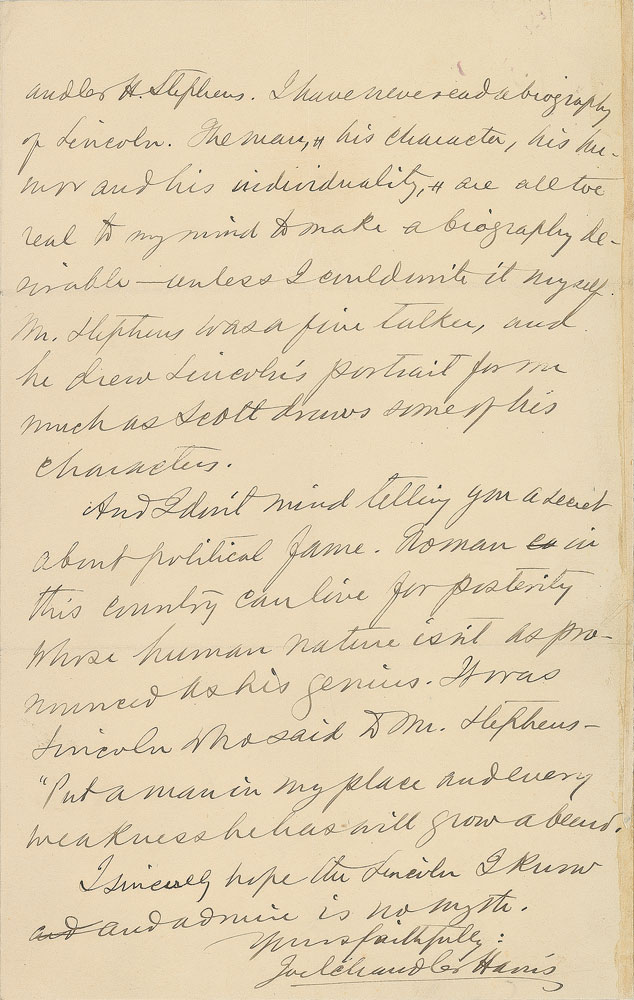 andler H. Stephens. I have never read a biography
of Lincoln. The man, & his character, his hu-
mor and his individuality, & are all too
real to my mind to make a biography de-
sirable — unless I could write it myself.
Mr. Stephens was a fine talker, and
he drew Lincoln's portrait for me
much as Scott draws some of his
characters.
And I don't mind telling you a secret
about political fame. No man co in
this country can live for posterity
whose human nature isn't as pro-
nounced as his genius. It was
Lincoln who said to Mr. Stephens—
"Put a man in my place and every
weakness he has will grow a beard.
I sincerely hope the Lincoln I know
and and admire is no myth.
Yours faithfully:
Joel Chandler Harris